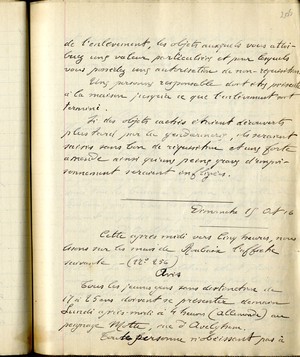 256
de l'enlèvement, les objets auxquels vous attri-
buez une valeur particulière et pour lesquels
vous possédez une autorisation de non-réquisition
Une personne responsable doit être présente
à la maison jusqu'à ce que l'enlèvement soit
terminé.
Si des objets cachés étaient découverts
plus tard par les gendarmes, ils seraient
saisis sans bon de réquisition et une forte
amende ainsi qu'une peine grave d'empri-
sonnement seraient infligées.
Dimanche 15 Oct 16
Cette après midi vers cinq heures, nous
lisons sur les murs de Roubaix l'affiche
suivante - (22e 254)
Avis
Tous les jeunes gens sans distinction de
17 à 25 ans doivent se présenter demain
Lundi après-midi à 4 heures (allemande) au
peignage Motte, rue d'Avelghem.
Toute personne n'obéissant pas à